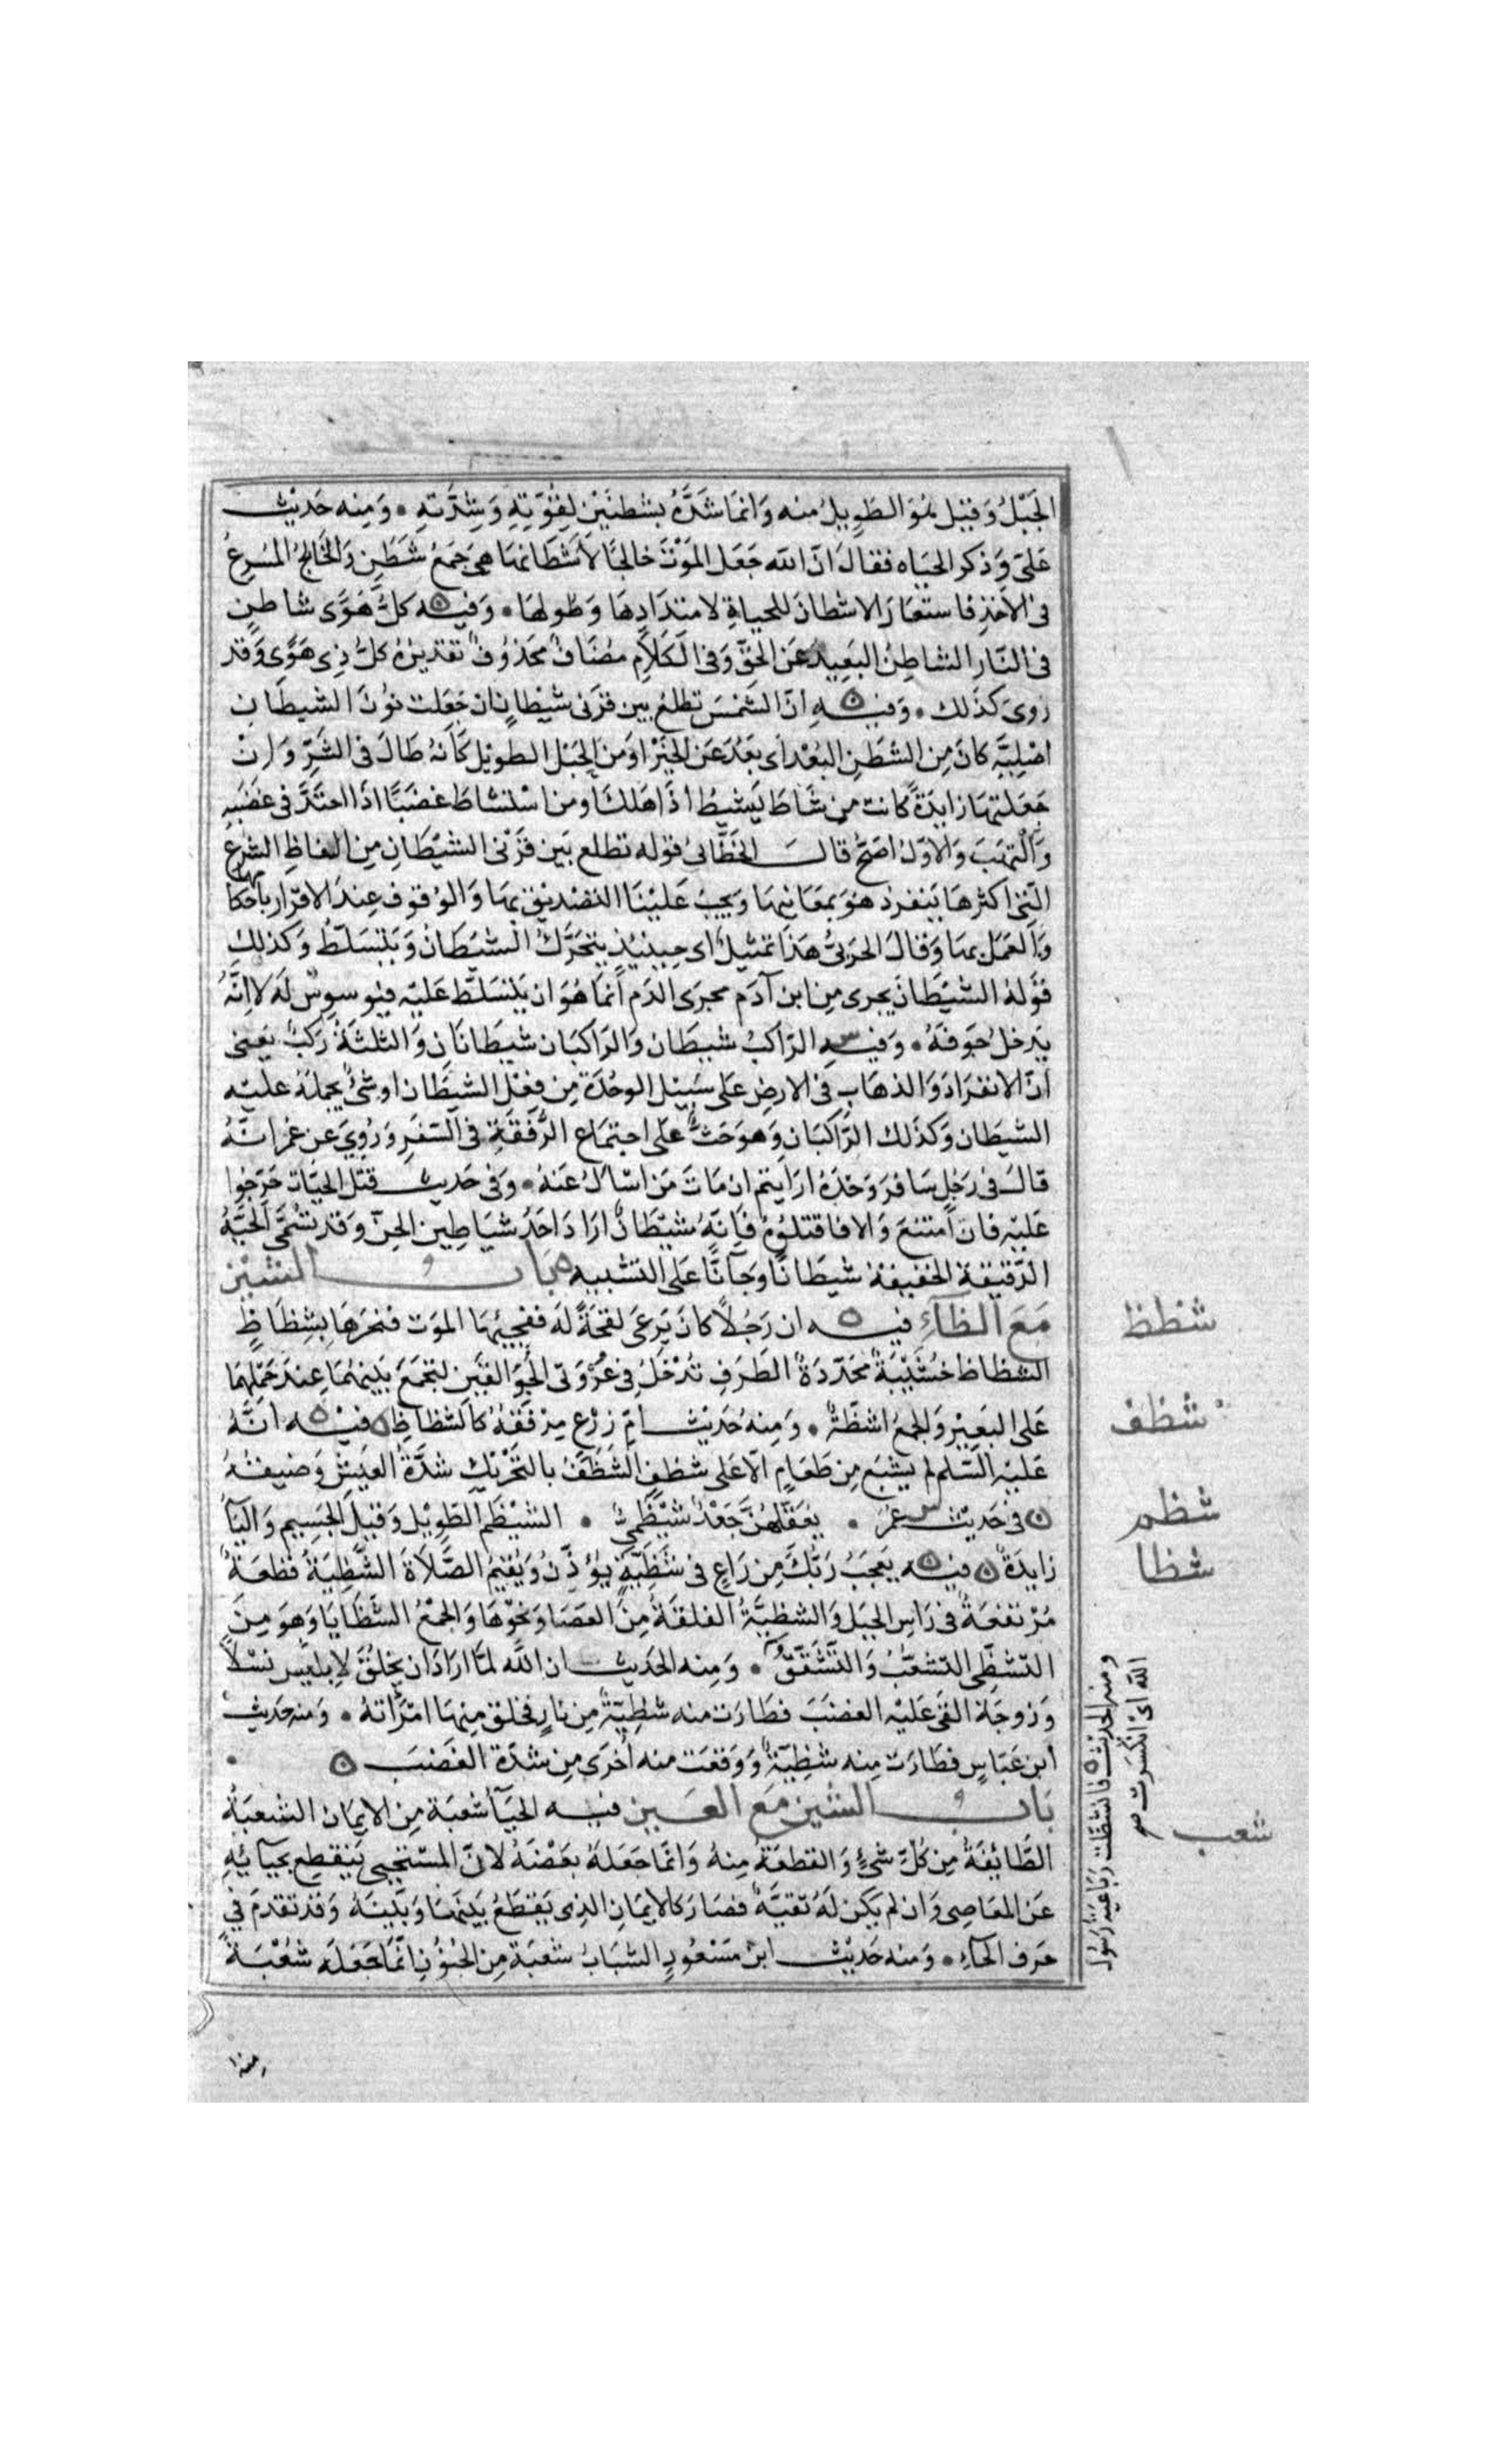 الحَبْلُ وَقيْل هُوَ الطَوِيلُ منه وَانمَا شَدَّهُ بشطنَيْن لِقُوَّتِهِ وَشِدَّتهِ ۰ وَمِنه حَديْث
عَليّ وَذكر الحيَاه فقالَ انّ الله جَعَل المَوْتَ خالجًا لأَشْطَانهَا هِيَ جَمْعُ شَطَنٍ وَالخَالجُ المُسْرِعُ
فى الأَخذِ فاستعَارَ الاشطانَ للحياةِ لامتدَادِهَا وَطُولهَا ۰ وَفيه كلُّ هَوًى شاطنٍ
فى النّار الشاطِنُ البَعِيد عَن الحَقّ وَفى الكَلاَمِ مضَافٌ محَذوُفٌ تقديرُهُ كلُّ ذِى هَوًى وَقد
رُوىَ كذَلك ۰ وَفيهِ انّ الشَمْسَ تطلعُ بين قرْنى شيْطانٍ ان جَعَلت نوُنَ الشيطَان
اصْلِيَّة كانَ مِن الشَطَنِ البُعْد اى بَعُدَ عَن الخيْر اوَ منَ الحَبْل الطويْل كَأَنهُ طَالَ فى الشَرِّ وَانْ
جَعَلتَهَا زايدَةً كانت من شَاطَ يَشيطُ اذَا هَلكَ اومن اسْتشَاطَ غضَبًا اذَا احتدَّ فى غضَبِهِ
وَالْتهَبَ وَالاوّلُ اصَحُّ قالَ الخَطّابىُ قوْله تطلع بَين قَرْنى الشيْطَانِ مِن الفاظِ الشرْع
الّتى اكثرهَا يَنفردُ هوَ بمعَانيهَا وَيجبُ عَليْنَا التصْديقُ بهَا وَالوُقوف عِندَ الاقرَار باَحكَامِهَا
وَالعَمَل بهَا وَقالَ الحَربىُّ هَذا تمثيْلٌ اى حِينئذٍ يتحَرَّكُ الشيَطانُ وَيَتسَلّطُ وَكذلِكَ
قَوْلهُ الشيَطَانُ يجرى مِن ابن آدَم مجرَى الدَم انمَا هُوَ ان يَتسَلط عَليْه فيُوسوِسُ لَهُ لا انَّهُ
يَدخلُ جَوفَهُ ۰ وَفيهِ الرّاكبُ شيطَان وَالرّاكبَان شيَطانَانِ وَالثلثَةُ رَكبٌ يَعنى
انّ الانفرَادَ وَالذهَابِ فى الارض عَلى سَبيْل الوحْدَة مِن فعْل الشيَطَان او شىٌ يحملُهُ عليْه
الشيَطان وَكذَلك الرّاكبَانِ وَهوَ حَثٌّ علَى اجتمَاع الرُّفقَةِ فى السَفَر وَرُوِيَ عن عمر انَّهُ
قالَ فى رَجُل سَافرَ وَحْدَهُ ارَايتم ان مَاتَ مَن اسْالُ عَنهُ ۰ وَفى حَديث قتْل الحيّات حَرّجوُا
عَليْه فان امْتنعَ وَالا فاقتلوُهُ فَانّهُ شيْطانٌ ارَادَ احَدُ شيَاطِين الجنّ وَقد تسُمّى الحَيّةُ
الدّقيْقة الخفيفة شيطَانًا وَجَآنًّا عَلى التشبيه ه بَابُ الشيْن
مَعَ الظَآءِ فيه ان رَجُلاً كانَ يَرعَى لقحَةً لَهُ ففجيهَا الموَت فنحَرهَا بشِظاظٍ
الشظاظ خُشيْبَةٌ محَدّدَةُ الطَرَفِ تُدْخَلُ فى عُرْوَتى الجُوَالقيَن لتجَمعَ بَينهُمَا عِندَ حَمْلهِمَا
عَلى البَعيْر وَالجمْعُ اشظَّةٌ ۰ وَمِنه حَديْث امّ زرْع مِرْفَقهُ كالشظاظِ ه فيْه انَّهُ
عَليْه السّلم لم يشْبَع مِن طَعَامٍ الاّ عَلى شظفٍ الشَظَفُ بالتَحْريْك شدَّةُ العيْش وَضيقهُ
ه فى حَديْث عُمَرَ ۰ يُعَقّلهُنَّ جَعْدٌ شيْظَمىٌّ ۰ الشيْظَم الطَوِيْل وَقيْل الجَسِيم وَاليَآءُ
زايدَةٌ ه فيه يَعجَبُ رَبّكَ مِن رَاعٍ فى شَظِيَّةٍ يُؤذّنُ وَيُقيْمُ الصَّلاَةَ الشَّظِيَةُ قطعَةٌ
مُرْتفعَةٌ فى رَاسِ الجبَل وَالشظيَّةُ الفلقَةُ مِنَ العصَا وَنحْوهَا وَالجمْعُ الشَظَايَا وَهوَ مِنَ
التشَظّى التشعّبُ وَالتَشَقّقُ ۰ وَمِنه الحَديث ان الله لمَّا ارَادَ ان يخلُقَ لاِبليْسَ نسْلاً
وَزوجَة القىَ عَليْه الغضَبَ فطَارَت منه شظِيّةٌ مِن نارٍ فخلق مِنهَا امْرَاتهُ ۰ وَمنه حَديث
ابن عَبّاسٍ فطَارَت مِنه شظِيّةٌ وَوَقعَت منه اُخرَى مِن شدّة الغَضَب ه
بَابُ الشين مَع العَين فيه الحيَآ شعبَة مِن الايمَان الشعبَةُ
الطَّائِفَةُ مِن كُلّ شئٍ وَالقطعَةُ مِنهُ وَانّمَا جَعَلهُ بعَضْهُ لانّ المسْتحيى يَنقطِع بحيآئِهِ
عَن المعَاصِى وَان لم يَكن لَهُ تقيَّةٌ فصَارَ كالايمَانِ الذِى يَقطعُ بَينهَا وَبَيْنَهُ وَقدْ تقدّمَ فى
حَرفِ الحآءِ ۰ وَمنه حَديْث ابن مَسْعُودٍ الشبَابُ شعبَة مِن الجنُوْن انّمَا جَعَلَه شُعْبَةً
شظظ
شظف
شظم
شظا
ومنه الحديث فانشظت ربَاعية رَسُول
الله اى انكسرت صح
شعب